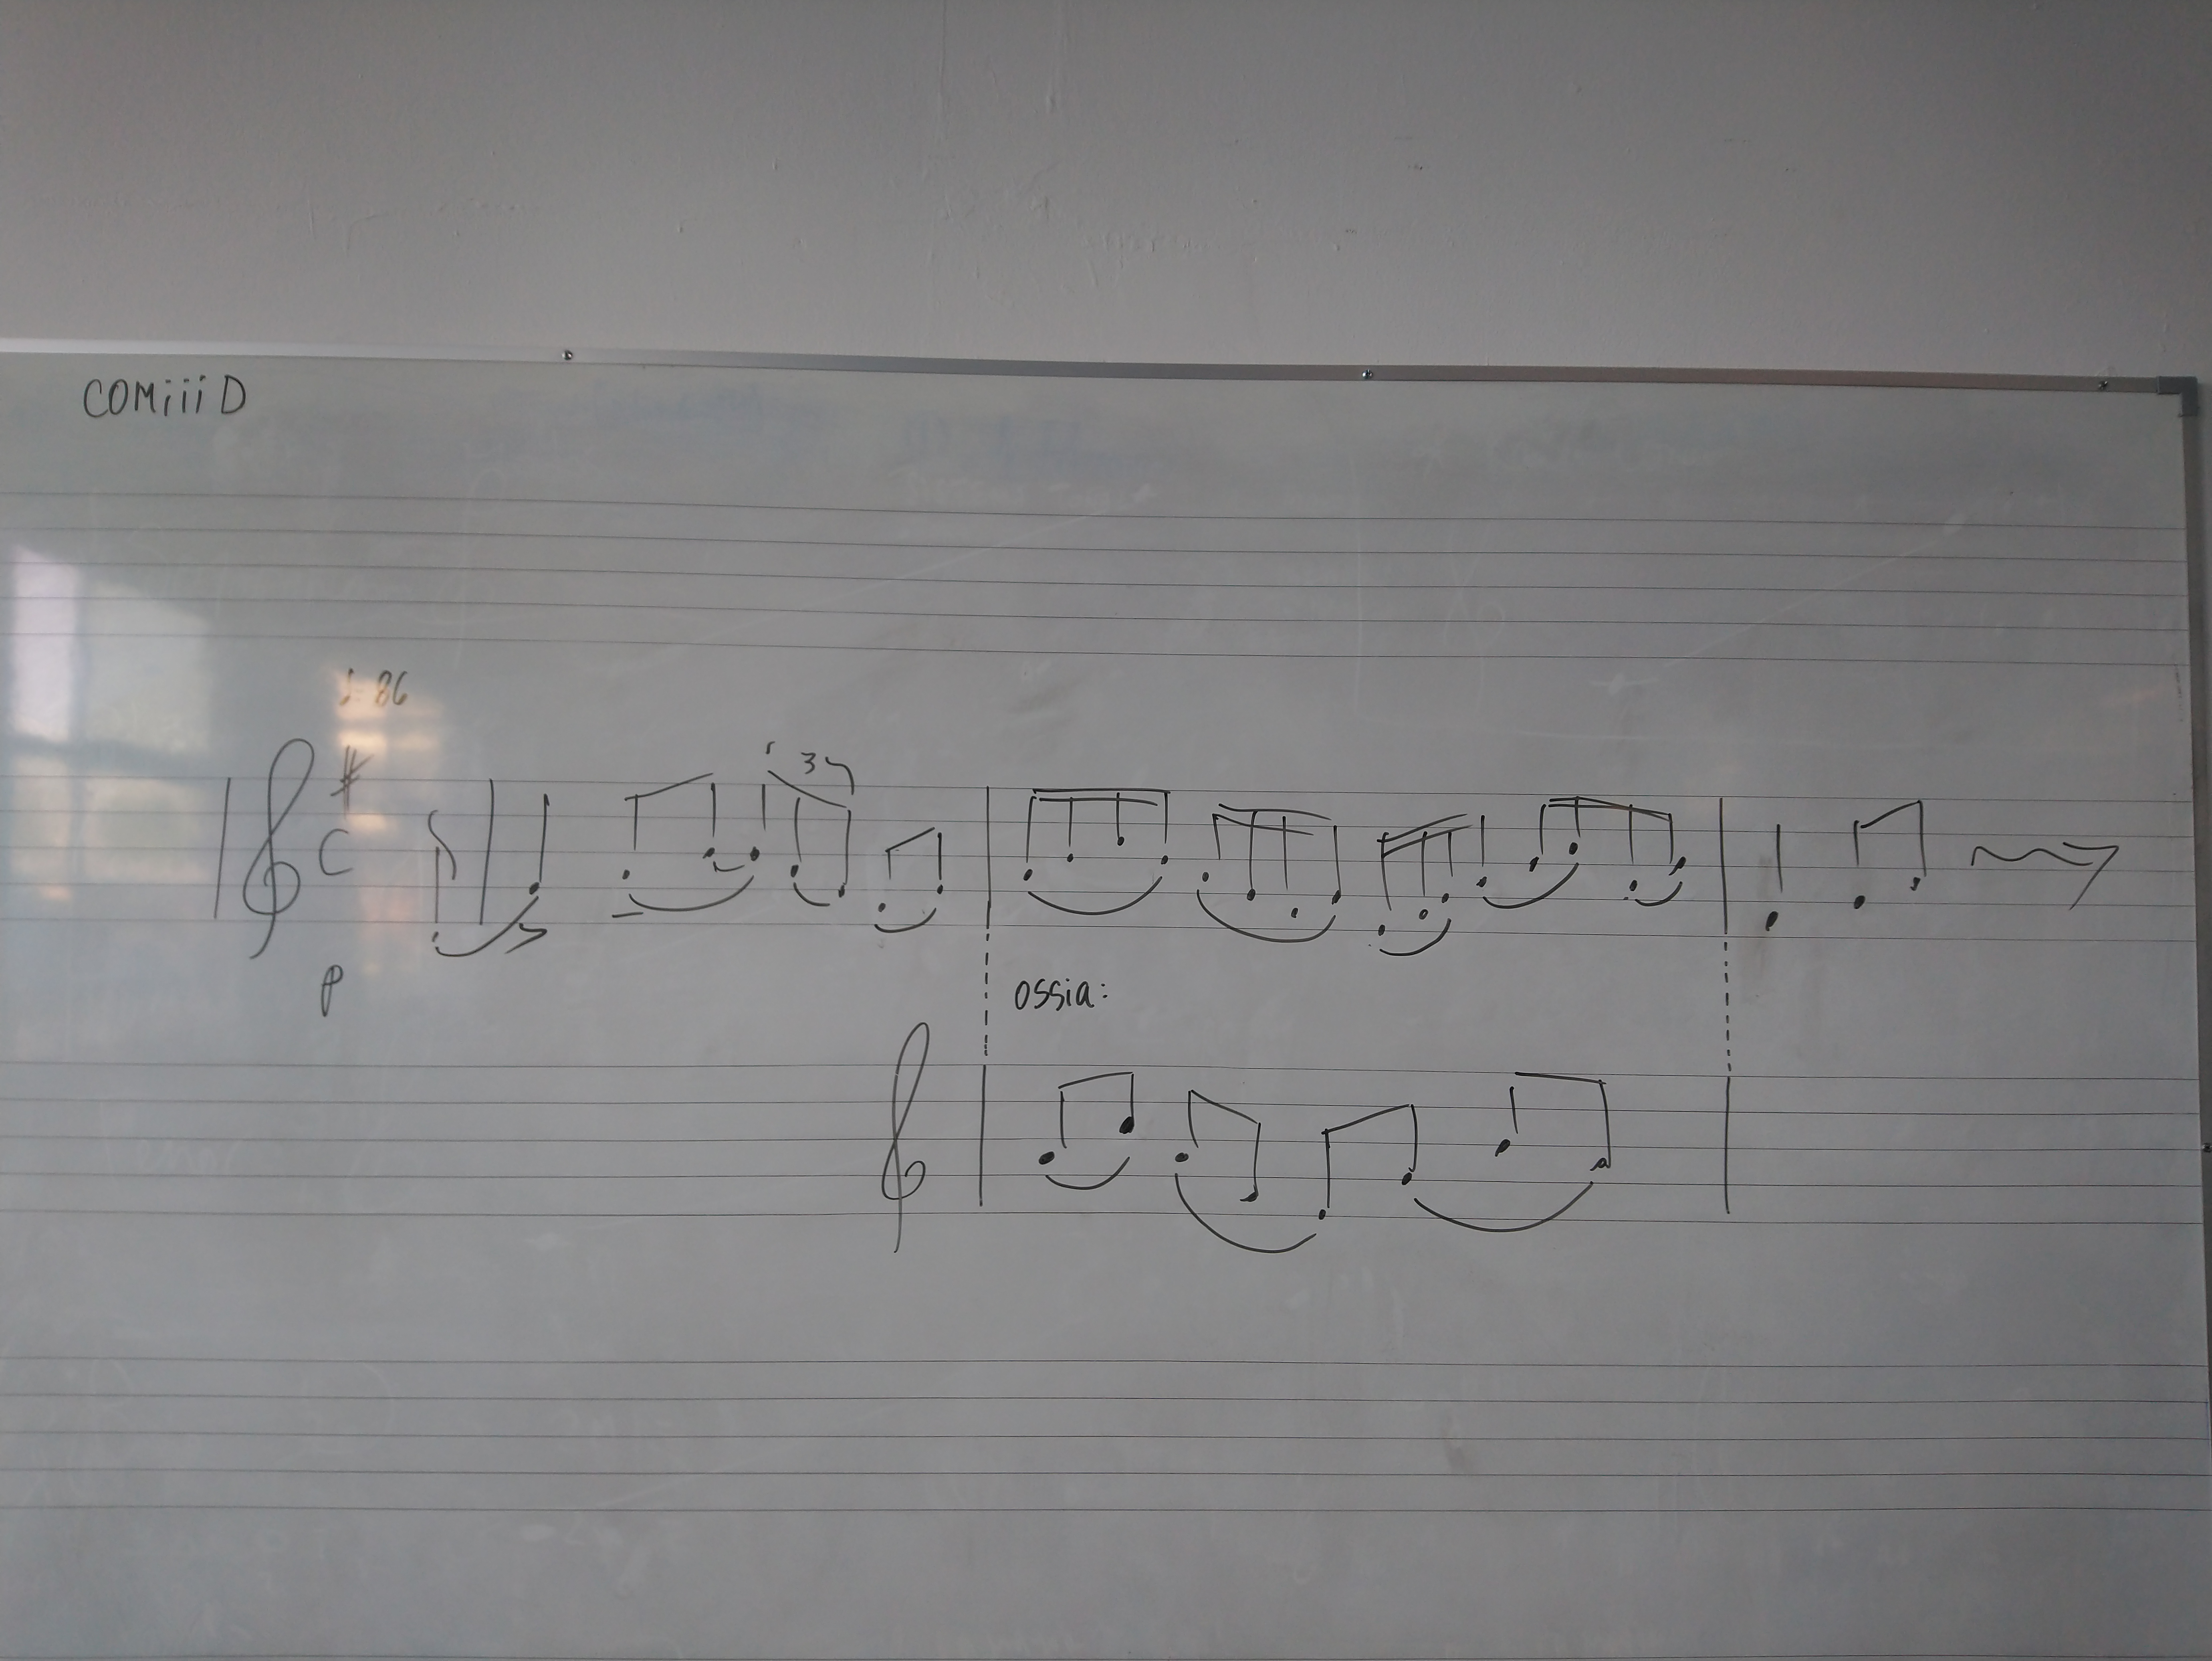 COMiiiD
♩=86
3
C
p
ossia: